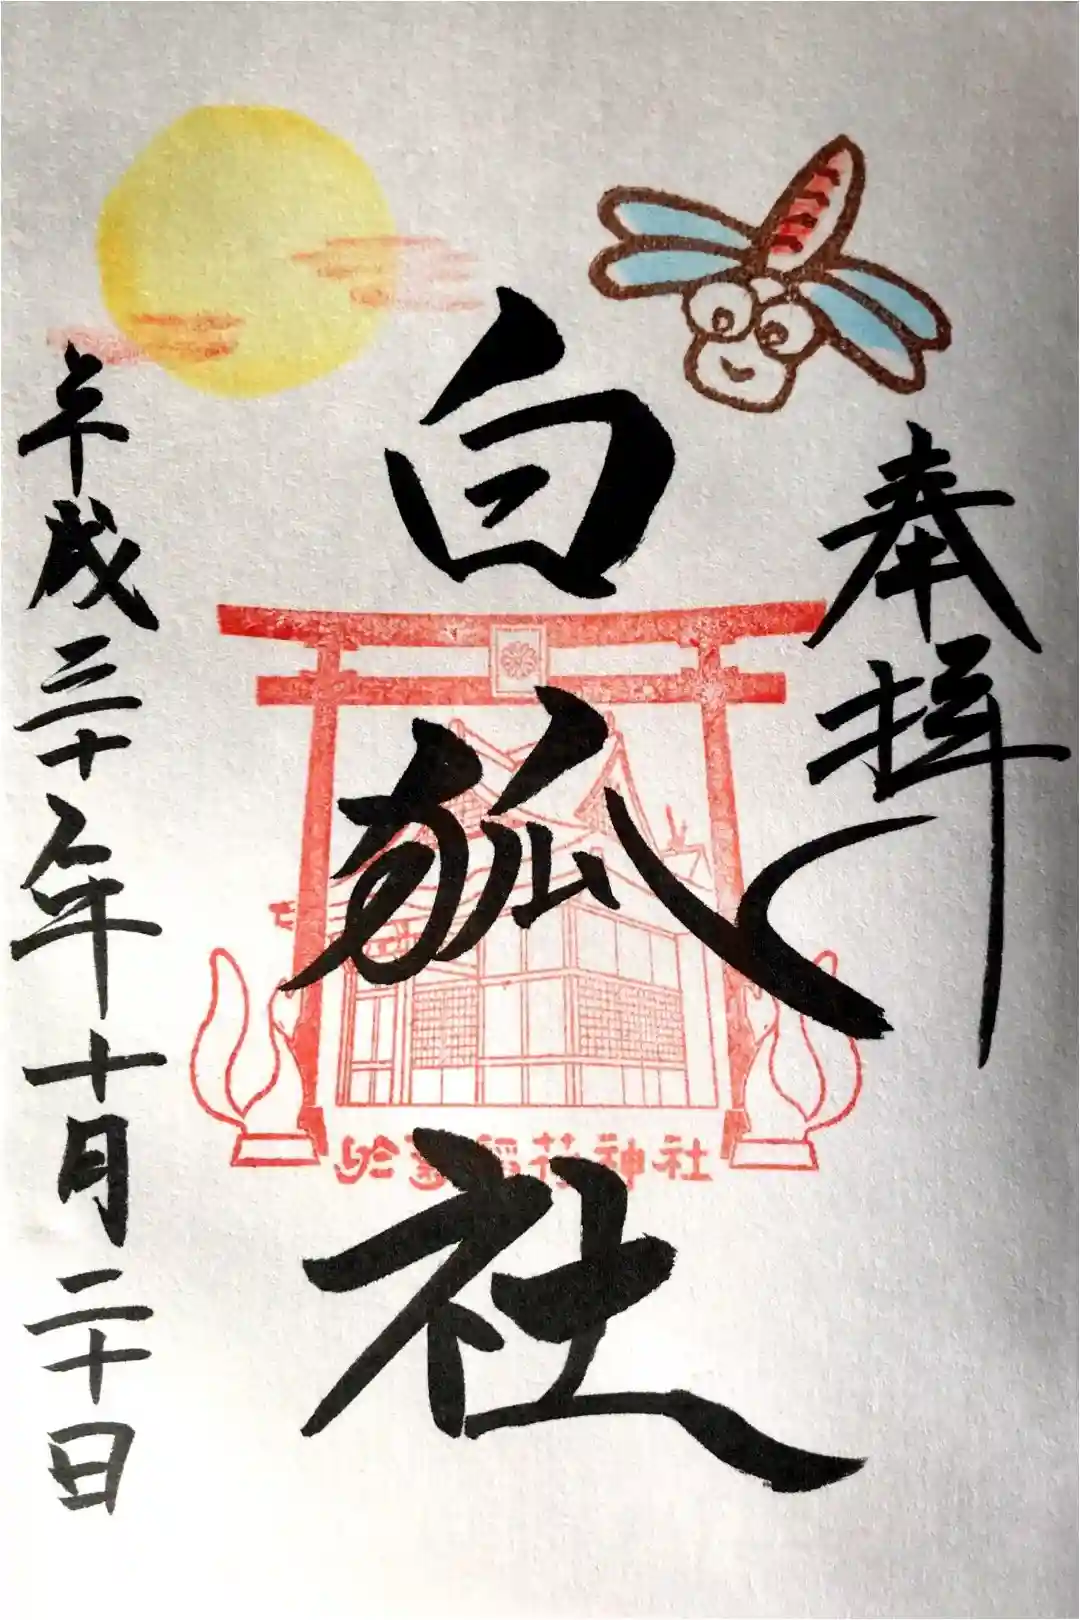 奉拝
白狐社
平成三十年十月二十日
稲荷神社